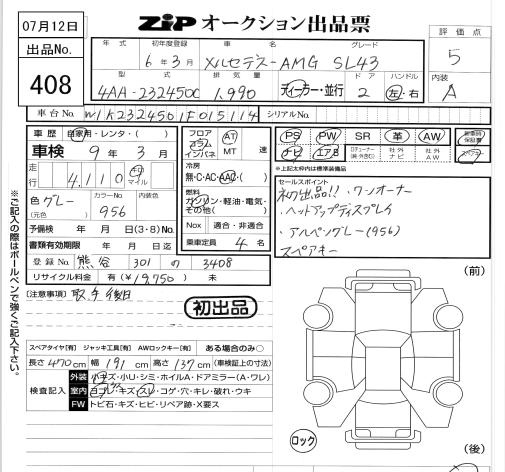 07月12日
出品No.
408
ZIP オークション出品票
評価点
5
内装
A
年式 初年度登録 車名 グレード
6年3月 メルセデス-AMG SL43
型式 排気量 ドア ハンドル
4AA-232450C 1,990 ディーラー・並行 2 左・右
車台No. W1K2324501F015114 シリアルNo.
車歴 自家用・レンタ・( )
車検 9年3月
走行 4,110 キロ マイル
色 グレー カラーNo 956 内装色
(元色)
予備検 年 月 日(3・8)No.
書類有効期限 年 月 日迄
登録No. 熊谷 301 の 3408
リサイクル料金 有(¥19,750) 無
フロア コラム インパネ AT MT 速
冷房
無・C・AC・AAC・( )
燃料
ガソリン・軽油・電気・その他( )
Nox 適合・非適合
乗車定員 4名
PS PW SR 革 AW 新車時保証書
ナビ エアB 社外ナビ 社外AW スペアキー
※上記太枠内は標準装備品
セールスポイント
初出品!!、ワンオーナー
・ヘッドアップディスプレイ
・アルペングレー(956)
スペアキー
[注意事項]
初出品
※ご記入の際はボールペンで強くご記入下さい。
スペアタイヤ[有] ジャッキ工具[有] AWロックキー[有] ある場合のみ○
長さ 470cm 幅 191cm 高さ 137cm (車検証上の寸法)
検査記入
外装 小キズ・小U・シミ・ホイルA・ドアミラー(A・ワレ)
室内 ヨゴレ・キズ・スレ・コゲ・穴・キレ・破れ・ウキ
FW トビ石・キズ・ヒビ・リペア跡・X要ス
(前)
ロック
(後)